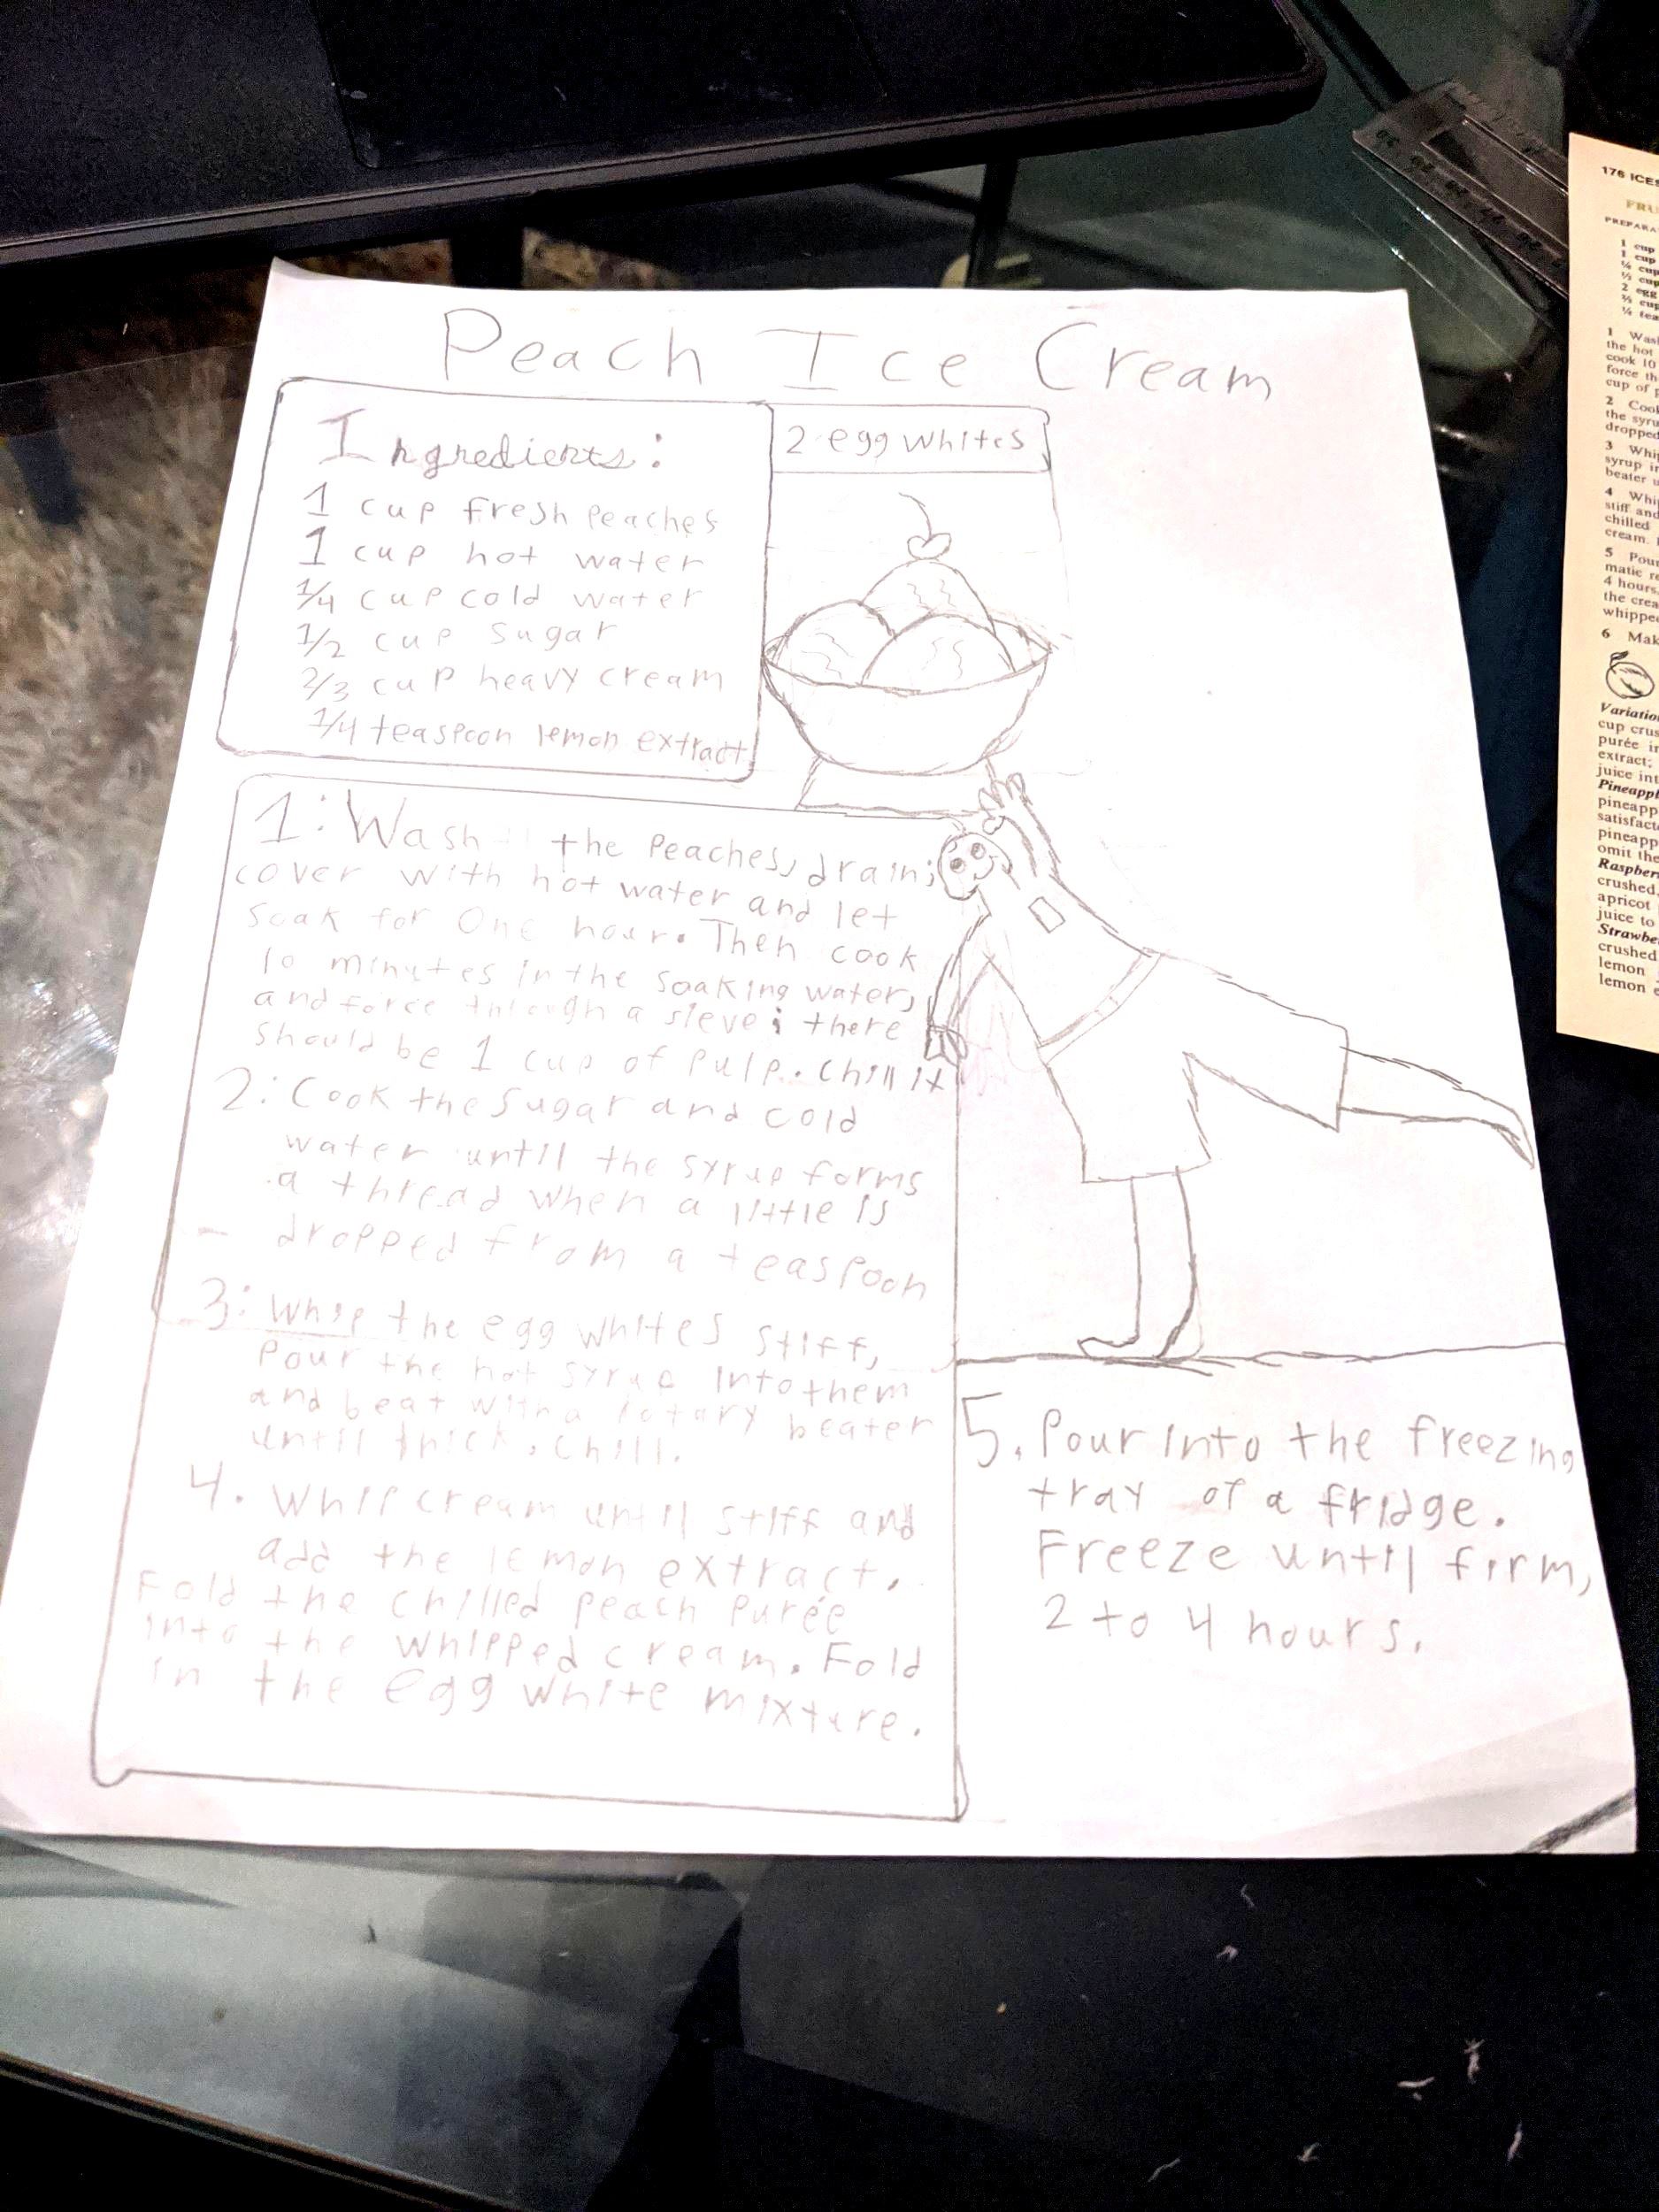 Peach Ice Cream
Ingredients:
1 cup fresh peaches
1 cup hot water
1/4 cup cold water
1/2 cup sugar
2/3 cup heavy cream
1/4 teaspoon lemon extract
2 egg whites
1: Wash the peaches, drain;
cover with hot water and let
soak for One hour. Then cook
10 minutes in the soaking water,
and force through a sieve; there
should be 1 cup of pulp. Chill it
2: Cook the sugar and cold
water until the syrup forms
a thread when a little is
dropped from a teaspoon
3: Whip the egg whites stiff,
Pour the hot syrup into them
and beat with a rotary beater
until thick. Chill.
4. Whip cream until stiff and
add the lemon extract.
Fold the chilled peach purée
into the whipped cream. Fold
in the egg white mixture.
5. Pour into the freezing
tray of a fridge.
Freeze until firm,
2 to 4 hours.
176 ICES
FRU
PREPARA
1 cup
1 cup
1/4 cup
1/2 cup
2 egg
2/3 cup
1/4 tea
1 Wash
the hot
cook 10
force th
cup of p
2 Cook
the syru
dropped
3 Whip
syrup in
beater u
4 Whip
stiff and
chilled
cream.
5 Pour
matic re
4 hours,
the crea
whipped
6 Mak
Variatio
cup crus
purée in
extract;
juice int
Pineappl
pineapp
satisfact
pineapp
omit the
Raspberr
crushed,
apricot
juice to
Strawbe
crushed
lemon
lemon e